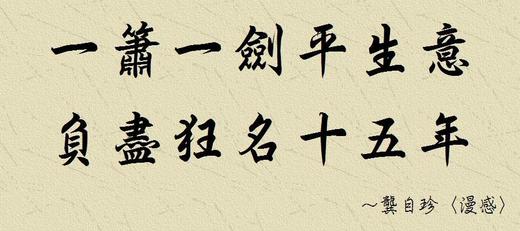 一簫一劍平生意
負盡狂名十五年
～龔自珍〈漫感〉